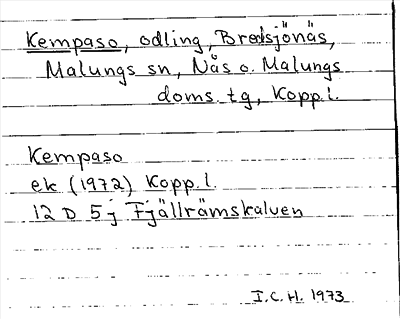 Kempaso, odling, Bredsjönäs,
Malungs sn, Näs o. Malungs
doms. tg, Kopp.l.
Kempaso
ek (1972) Kopp.l.
12 D 5 j Fjällrämskalven
I.C.H. 1973